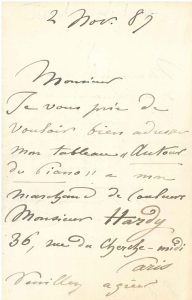 2 Nov. 87
Monsieur
Je vous prie de
vouloir bien adresser
mon tableau "Autour
du Piano" a mon
marchand de couleurs
Monsieur Hardy
36, rue du Cherche-midi
Paris
Veuillez agréer